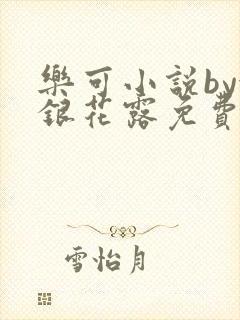 樂可小說by
銀花露免費
雪怡月